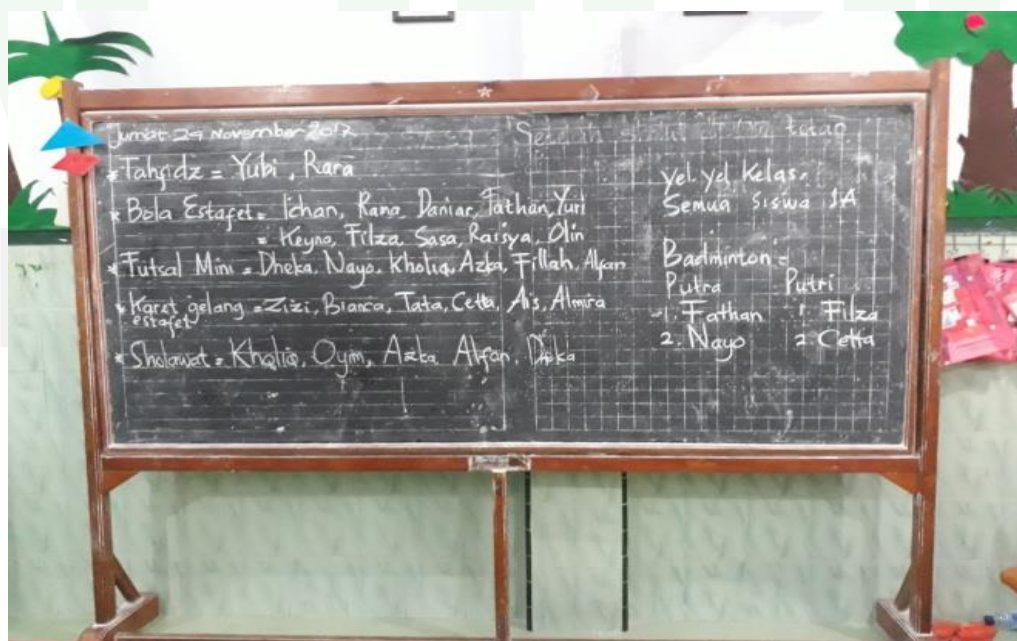 Jumat 24 November 2017
* Tahfidz = Yubi, Rara
* Bola Estafet = Ichan, Rana, Daniar, Fathan, Yuri
= Keyna, Filza, Sasa, Raisya, Olin
* Futsal Mini = Dheka, Nayo, Kholiq, Azka, Fillah, Alfan
* Karet gelang = Zizi, Bianca, Tata, Cetta, Ais, Almira
estafet
* Sholawat = Kholiq, Oyim, Azka, Alfan, Dheka
Yel. Yel Kelas =
Semua Siswa 1A
Badminton =
Putra Putri
1. Fathan 1. Filza
2. Nayo 2. Cetta